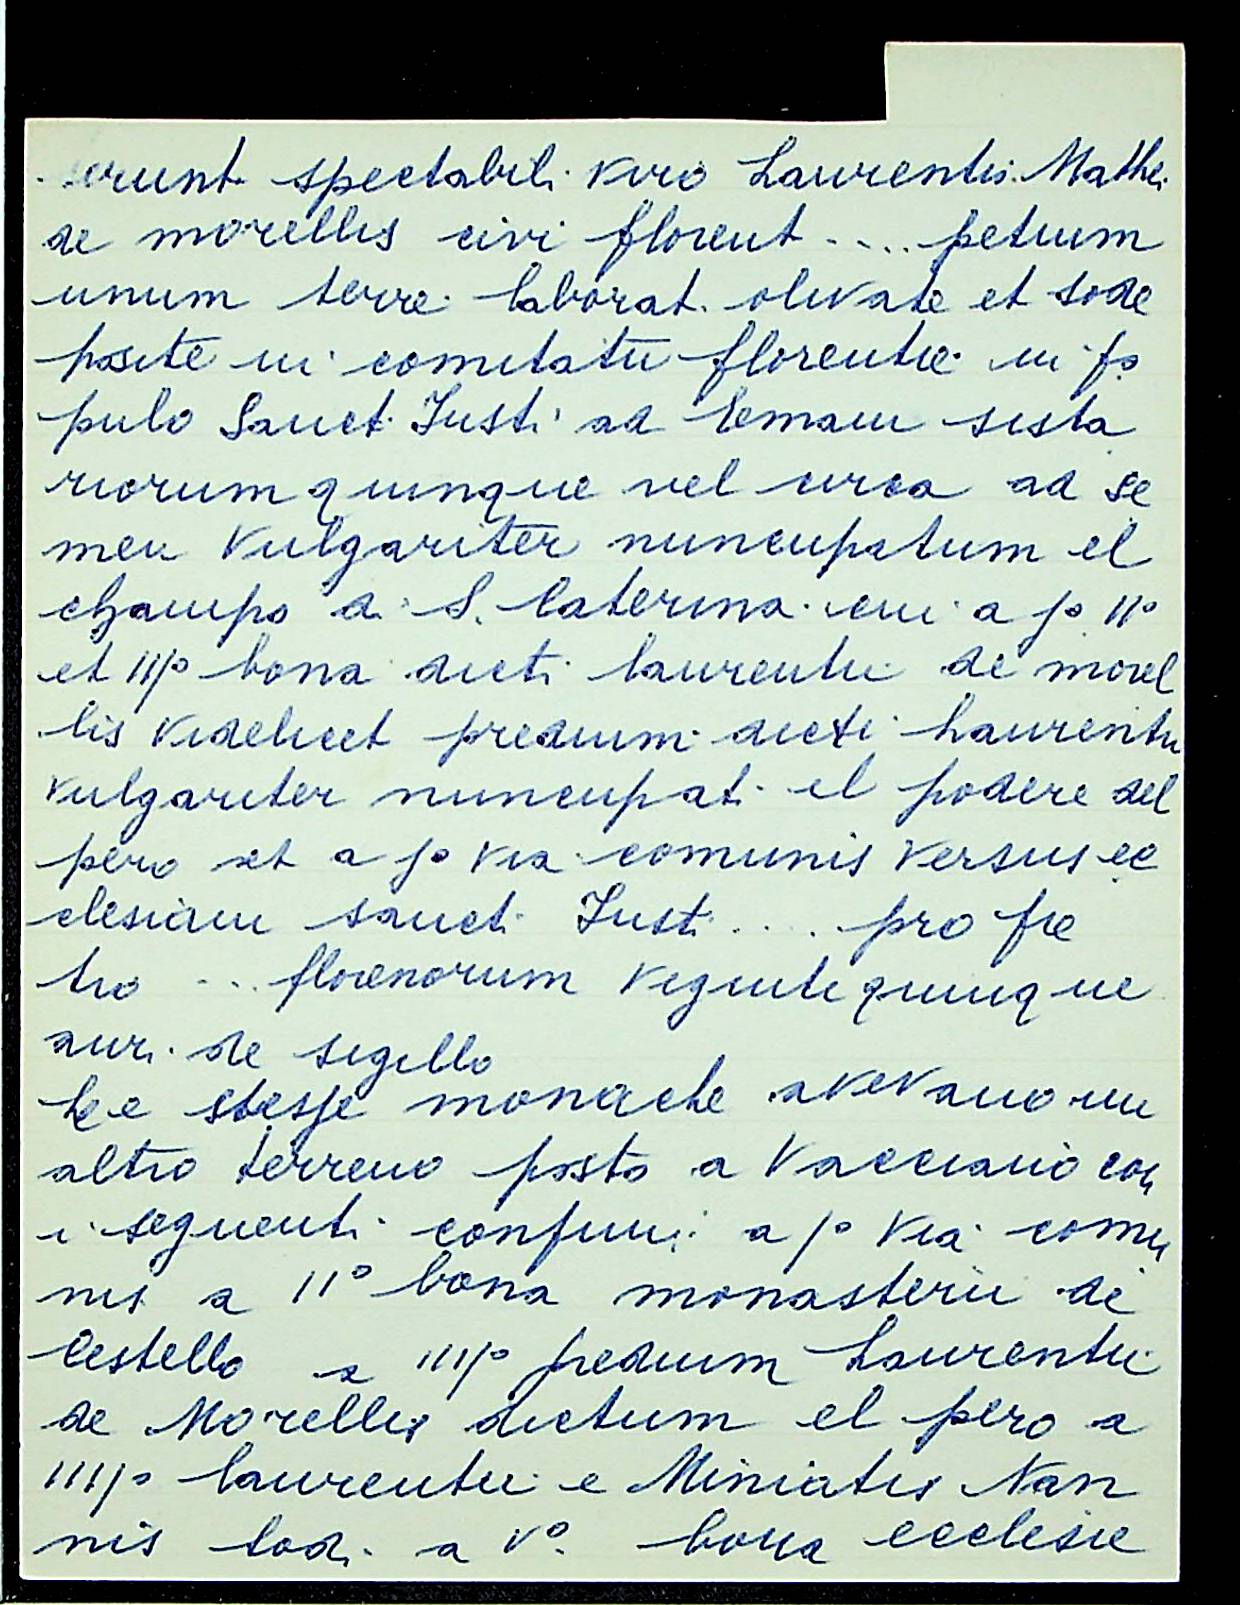 erunt spectabili viro Laurentio Mathei
de morellis civi florent .... petium
unum terre laborat. olivate et sode
posite in comitatu florentie in po
pulo Sancti Iusti ad Eman sista
riorum quinque vel circa ad se
men vulgariter nuncupatum el
champo di S. Caterina cui a p° II°
et III° bona dicti laurentii de morel
lis videlicet predium dicti Laurentii
vulgariter nuncupati el podere del
pero et a p° via comunis versus ec
clesiam sancti Iusti .... pro pre
tio ... florenorum vigintiquinque
auri de sigillo
Le stesse monache avevano un
altro terreno posto a Vacciano con
i seguenti confini: a p° via comu
nis a II° bona monasterii de
Cestello a III° predium Laurentii
de Morellis dictum el pero a
IIII° laurentii e Miniatis Nan
nis a V° bona ecclesie